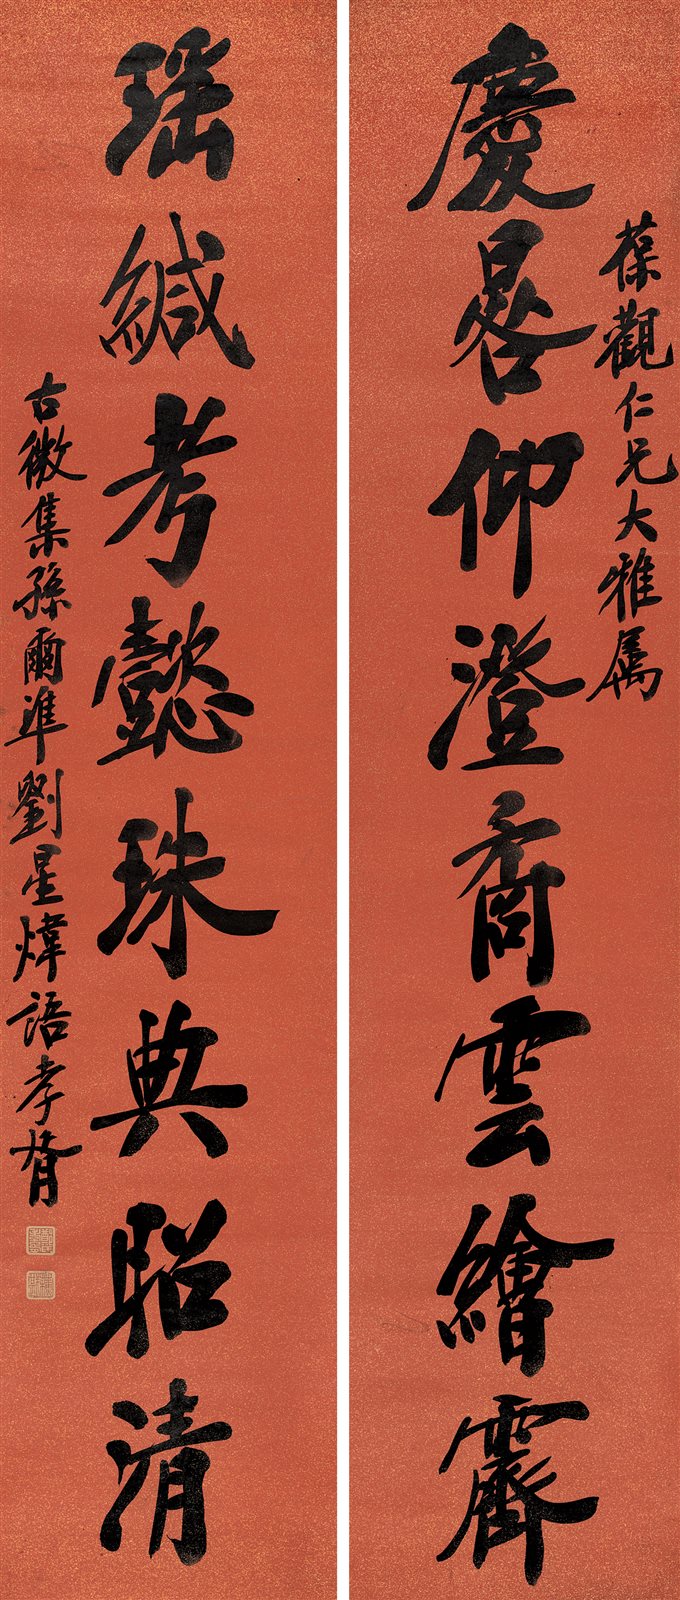 葆觀仁兄大雅属
慶晷仰澄矞雲繪霽
瑶緘考懿珠典昭清
古微集孫爾準劉星煒語孝胥